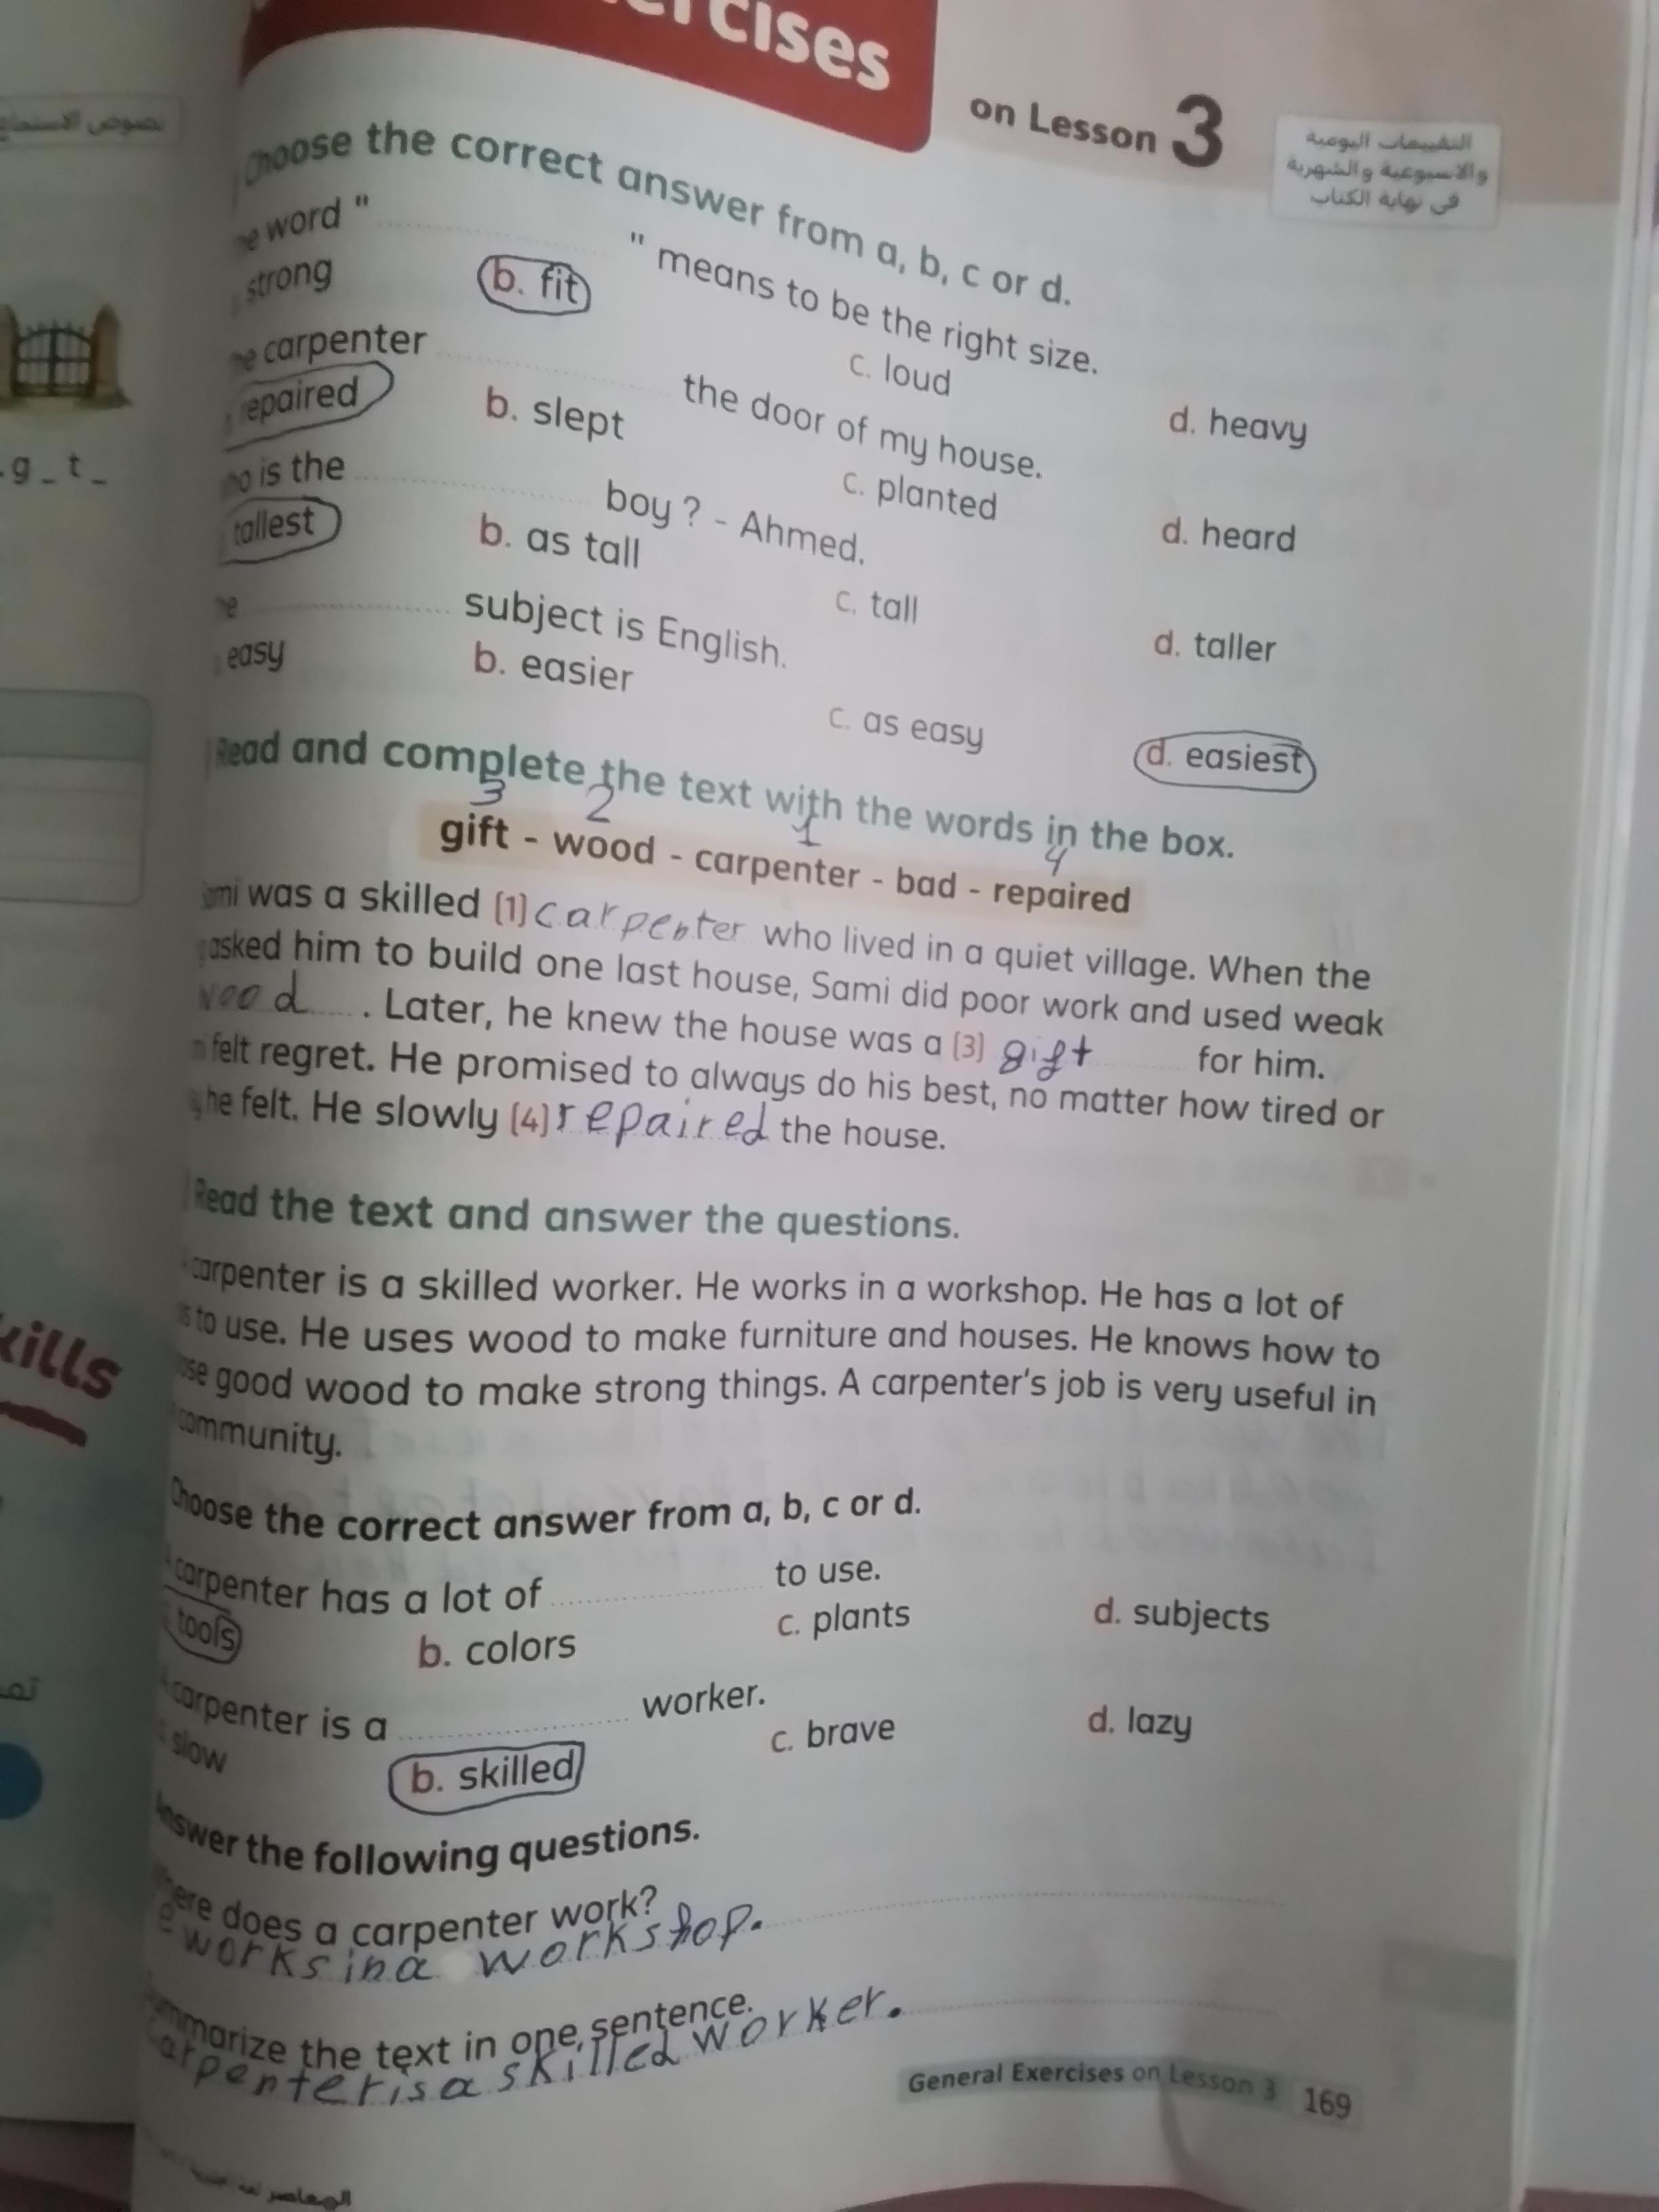 نصوص الاستماع
g _ t _
on Lesson 3
التقييمات اليومية
والاسبوعية والشهرية
في نهاية الكتاب
Choose the correct answer from a, b, c or d.
word " " means to be the right size.
strong b. fit c. loud d. heavy
carpenter the door of my house.
repaired b. slept c. planted d. heard
is the boy ? - Ahmed.
tallest b. as tall c. tall d. taller
subject is English.
easy b. easier c. as easy d. easiest
Read and complete the text with the words in the box.
3 2 1 4
gift - wood - carpenter - bad - repaired
was a skilled (1) carpenter who lived in a quiet village. When the
asked him to build one last house, Sami did poor work and used weak
wood . Later, he knew the house was a (3) gift for him.
felt regret. He promised to always do his best, no matter how tired or
he felt. He slowly (4) repaired the house.
Read the text and answer the questions.
carpenter is a skilled worker. He works in a workshop. He has a lot of
to use. He uses wood to make furniture and houses. He knows how to
good wood to make strong things. A carpenter's job is very useful in
community.
Choose the correct answer from a, b, c or d.
carpenter has a lot of to use.
tools b. colors c. plants d. subjects
carpenter is a worker.
slow b. skilled c. brave d. lazy
Answer the following questions.
does a carpenter work?
works in a workshop.
the text in one sentence.
carpenter is a skilled worker.
General Exercises on Lesson 3 169